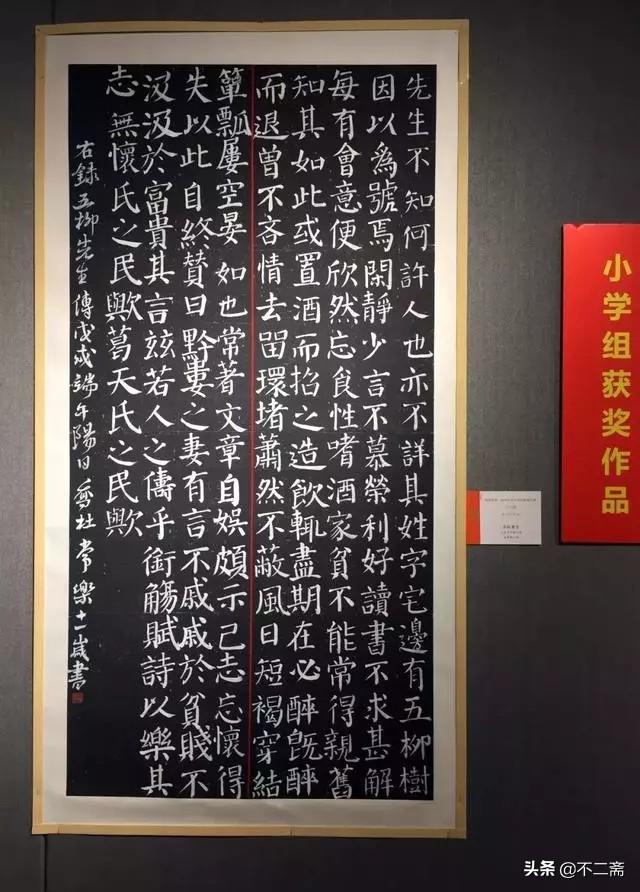 先生不知何許人也亦不詳其姓字宅邊有五柳樹
因以爲號焉閑靜少言不慕榮利好讀書不求甚解
每有會意便欣然忘食性嗜酒家貧不能常得親舊
知其如此或置酒而招之造飲輒盡期在必醉既醉
而退曾不吝情去留環堵蕭然不蔽風日短褐穿結
簞瓢屢空晏如也常著文章自娛頗示己志忘懷得
失以此自終贊曰黔婁之妻有言不戚戚於貧賤不
汲汲於富貴其言玆若人之儔乎銜觴賦詩以樂其
志無懷氏之民歟葛天氏之民歟
右録五柳先生傳戊戌端午陽日常樂十一歲書
小学组获奖作品
头条 @不二斋